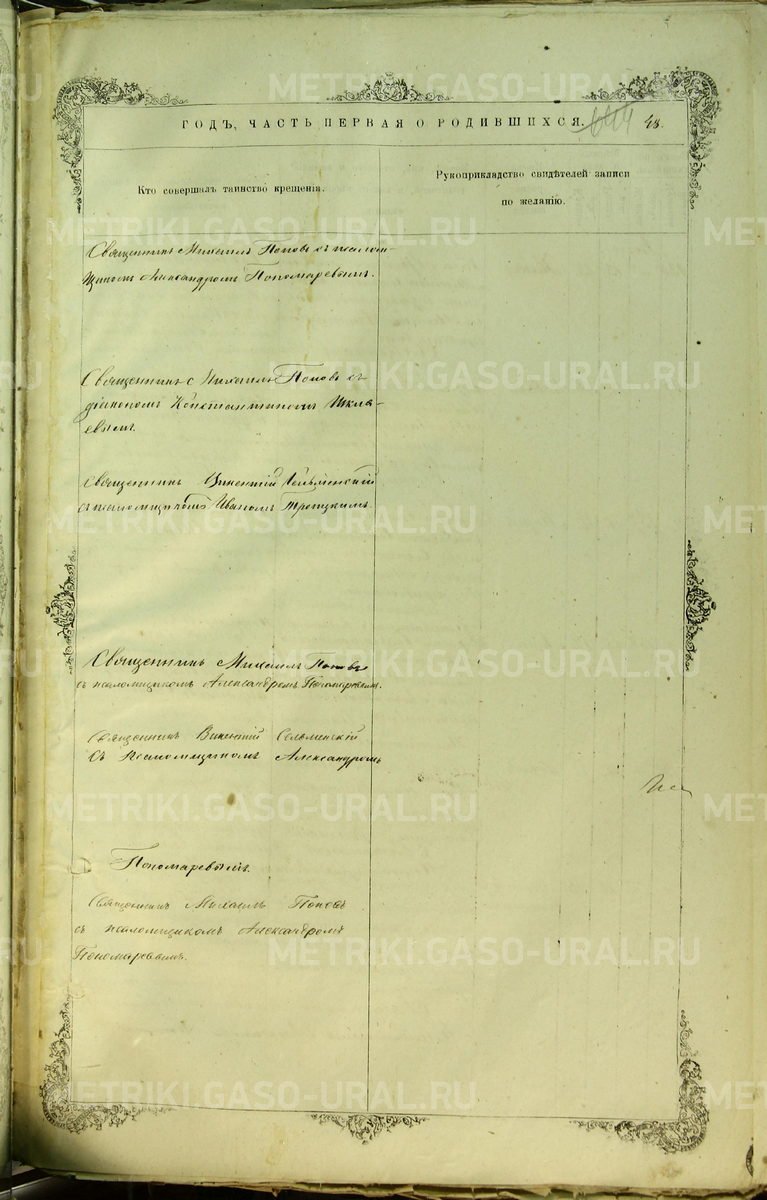 ГОДЪ, ЧАСТЬ ПЕРВАЯ О РОДИВШИХСЯ. 48.
Кто совершалъ таинство крещенія.
Рукоприкладство свидѣтелей записи
по желанію.
Священникъ Михаилъ Поповъ съ псалом-
щикомъ Александромъ Пономаревымъ.
Священникъ Михаилъ Поповъ съ
діакономъ Константиномъ Шкля-
евымъ.
Священникъ Викентій Сельменскій
съ псаломщикомъ Иваномъ Троицкимъ.
Священникъ Михаилъ Поповъ
съ псаломщикомъ Александромъ Пономаревымъ.
Священникъ Викентій Сельменскій
Съ Псаломщикомъ Александромъ
Пономаревымъ.
Священникъ Михаилъ Поповъ
съ псаломщикомъ Александромъ
Пономаревымъ.
METRIKI.GASO-URAL.RU